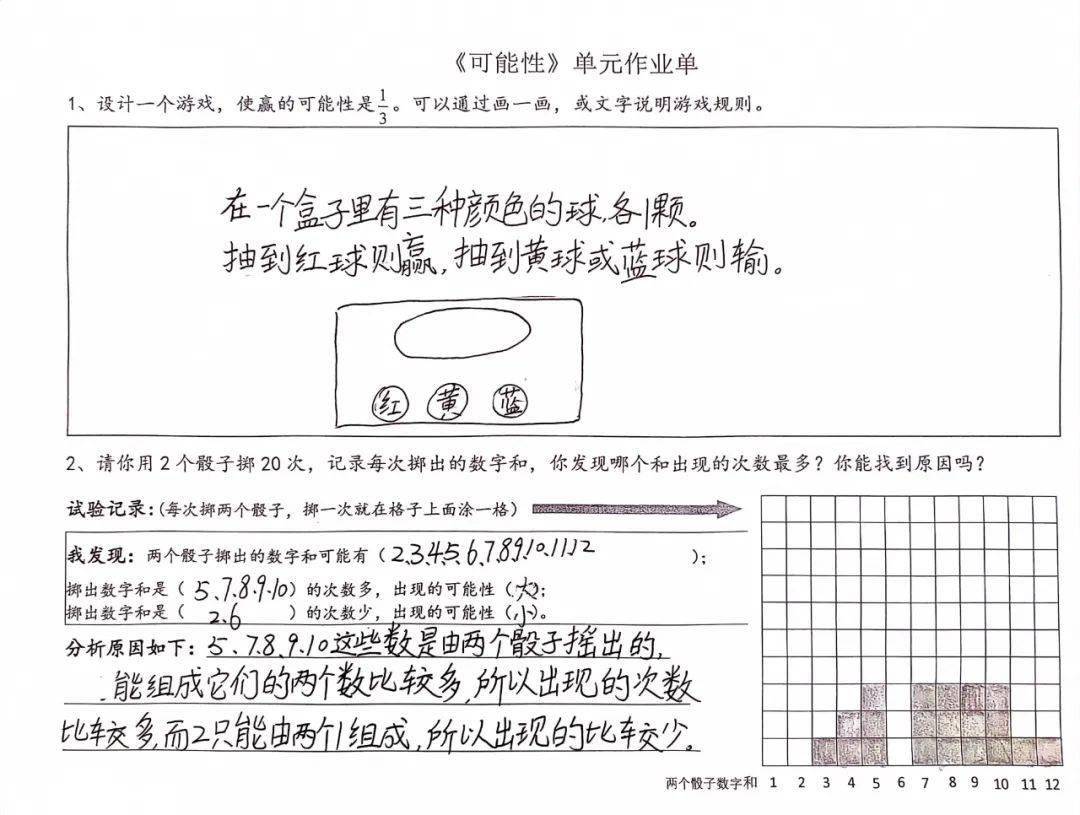 《可能性》单元作业单
1、设计一个游戏，使赢的可能性是1/3。可以通过画一画，或文字说明游戏规则。
在一个盒子里有三种颜色的球,各1颗。
抽到红球则赢,抽到黄球或蓝球则输。
红 黄 蓝
2、请你用2个骰子掷20次，记录每次掷出的数字和，你发现哪个和出现的次数最多？你能找到原因吗？
试验记录：(每次掷两个骰子，掷一次就在格子上面涂一格)
我发现：两个骰子掷出的数字和可能有（2、3、4、5、6、7、8、9、10、11、12）；
掷出数字和是（5、7、8、9、10）的次数多，出现的可能性（大）；
掷出数字和是（2、6）的次数少，出现的可能性（小）。
分析原因如下：5、7、8、9、10这些数是由两个骰子摇出的,
能组成它们的两个数比较多,所以出现的次数
比较多,而2只能由两个1组成,所以出现的比较少。
两个骰子数字和 1 2 3 4 5 6 7 8 9 10 11 12